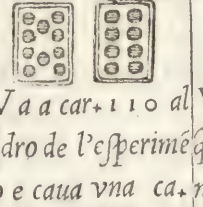 V a a car+ 1 1 0 al V
dro de l'eſperimē q
o e caua vna ca+ n